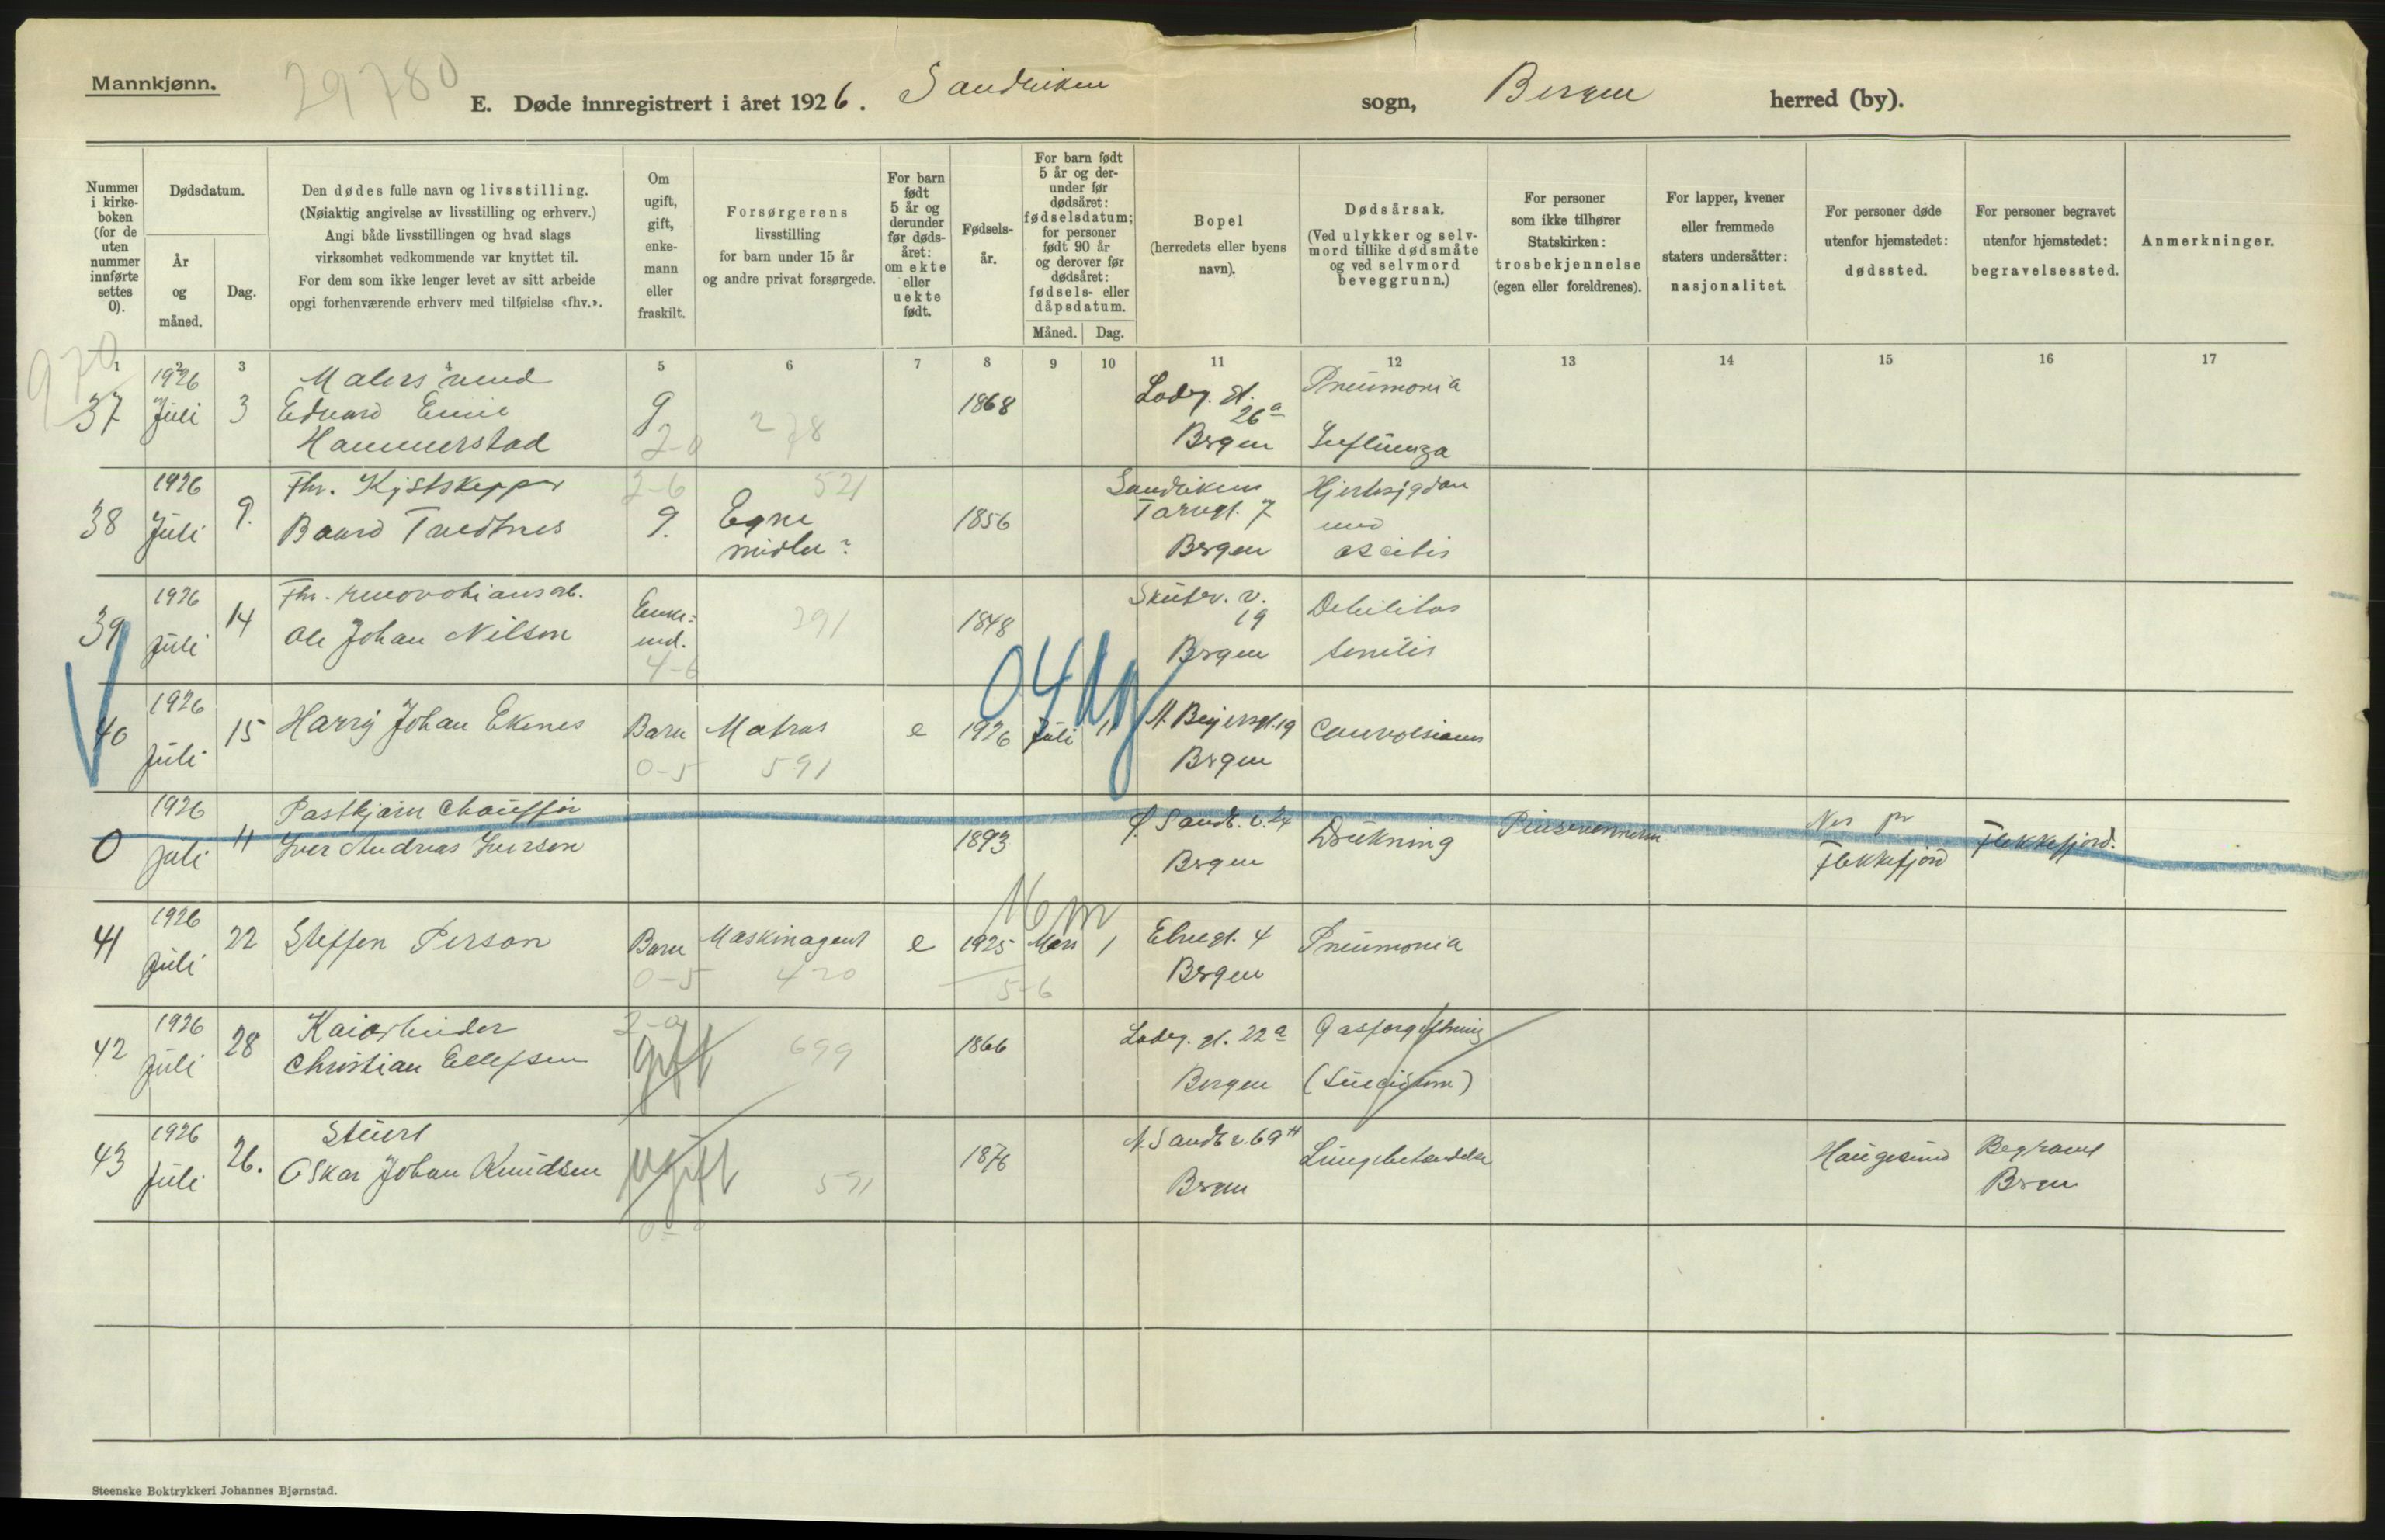 Mannkjønn.
29780
E. Døde innregistrert i året 1926. Sandviken sogn, Bergen herred (by).
Nummer i kirkeboken (for de uten nummer innførte settes 0).
Dødsdatum.
År og måned.
Dag.
Den dødes fulle navn og livsstilling.
(Nøiaktig angivelse av livsstilling og erhverv.)
Angi både livsstillingen og hvad slags
virksomhet vedkommende var knyttet til.
For dem som ikke lenger levet av sitt arbeide
opgi forhenværende erhverv med tilføielse «fhv.».
Om ugift, gift, enkemann eller fraskilt.
Forsørgerens
livsstilling
for barn under 15 år
og andre privat forsørgede.
For barn født 5 år og derunder før dødsåret: om ekte eller uekte født.
Fødselsår.
For barn født 5 år og derunder før dødsåret: fødselsdatum; for personer født 90 år og derover før dødsåret: fødsels- eller dåpsdatum.
Måned. Dag.
Bopel
(herredets eller byens
navn).
Dødsårsak.
(Ved ulykker og selvmord tillike dødsmåte og ved selvmord beveggrunn.)
For personer
som ikke tilhører
Statskirken:
trosbekjennelse
(egen eller foreldrenes).
For lapper, kvener
eller fremmede
staters undersåtter:
nasjonalitet.
For personer døde
utenfor hjemstedet:
dødssted.
For personer begravet
utenfor hjemstedet:
begravelsessted.
Anmerkninger.
1 2 3 4 5 6 7 8 9 10 11 12 13 14 15 16 17
970
37 1926 Juli 3 Malers vend
Edvard Emil
Hammerstad g. 278 1868 Lodg. gt. 26a
Bergen Pneumonia
Influenza
38 1926 Juli 9. Fhv. Kystskipper
Baard Tvedtnes 2-6 g. 521 Egne
midler? 1856 Sandvikens
Torvgt. 7
Bergen Hjertesygdom
med
ascitis
39 1926 Juli 14 Fhv. renovationsarb.
Ole Johan Nilsen Enke-
md. 4-6 391 1848 Skutev. v.
19
Bergen Debilitas
senilis
40 1926 Juli 15 Harry Johan Ekenes Barn 0-5 Matros 591 e 1926 Juli 11 04dg St. Beyersgt. 19
Bergen Convolsiones
0 1926 Juli 11 Postkjører Chauffør
Iver Andreas Iversen 1893 Sandv. v. 24
Bergen Drukning Pinsevennerne Nes pr
Flekkefjord Flekkefjord.
41 1926 Juli 22 Steffen Person Barn 0-5 Maskinagent 420 e 1925 Mars 1 16 m
5-6 Elvegt. 4
Bergen Pneumonia
42 1926 Juli 28 Kaiarbeider
Christian Ellefsen gift 699 1866 Lodg. gt. 22a
Bergen Gasforgiftning
(Suicidium)
43 1926 Juli 26. Stuert
Oskar Johan Knudsen ugift 591 1876 N. Sandv. v. 69H
Bergen Lungebetendelse Haugesund Begravet
Bergen
Steenske Boktrykkeri Johannes Bjørnstad.